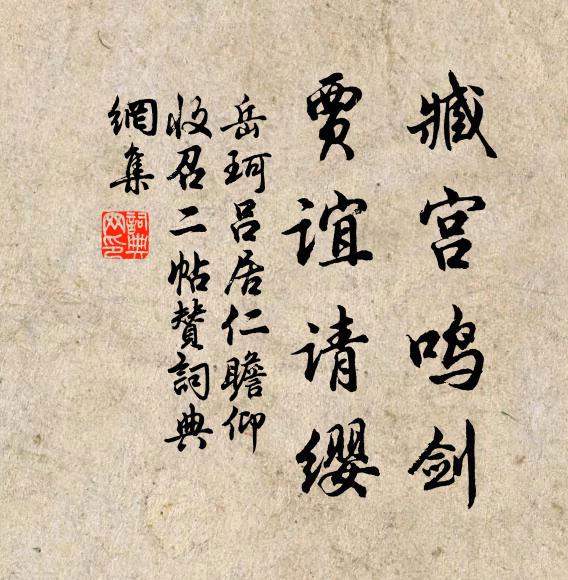 臧宫鸣剑
贾谊请缨
岳珂吕居仁瞻仰
收召二帖赞詞典
網集
詞典网印